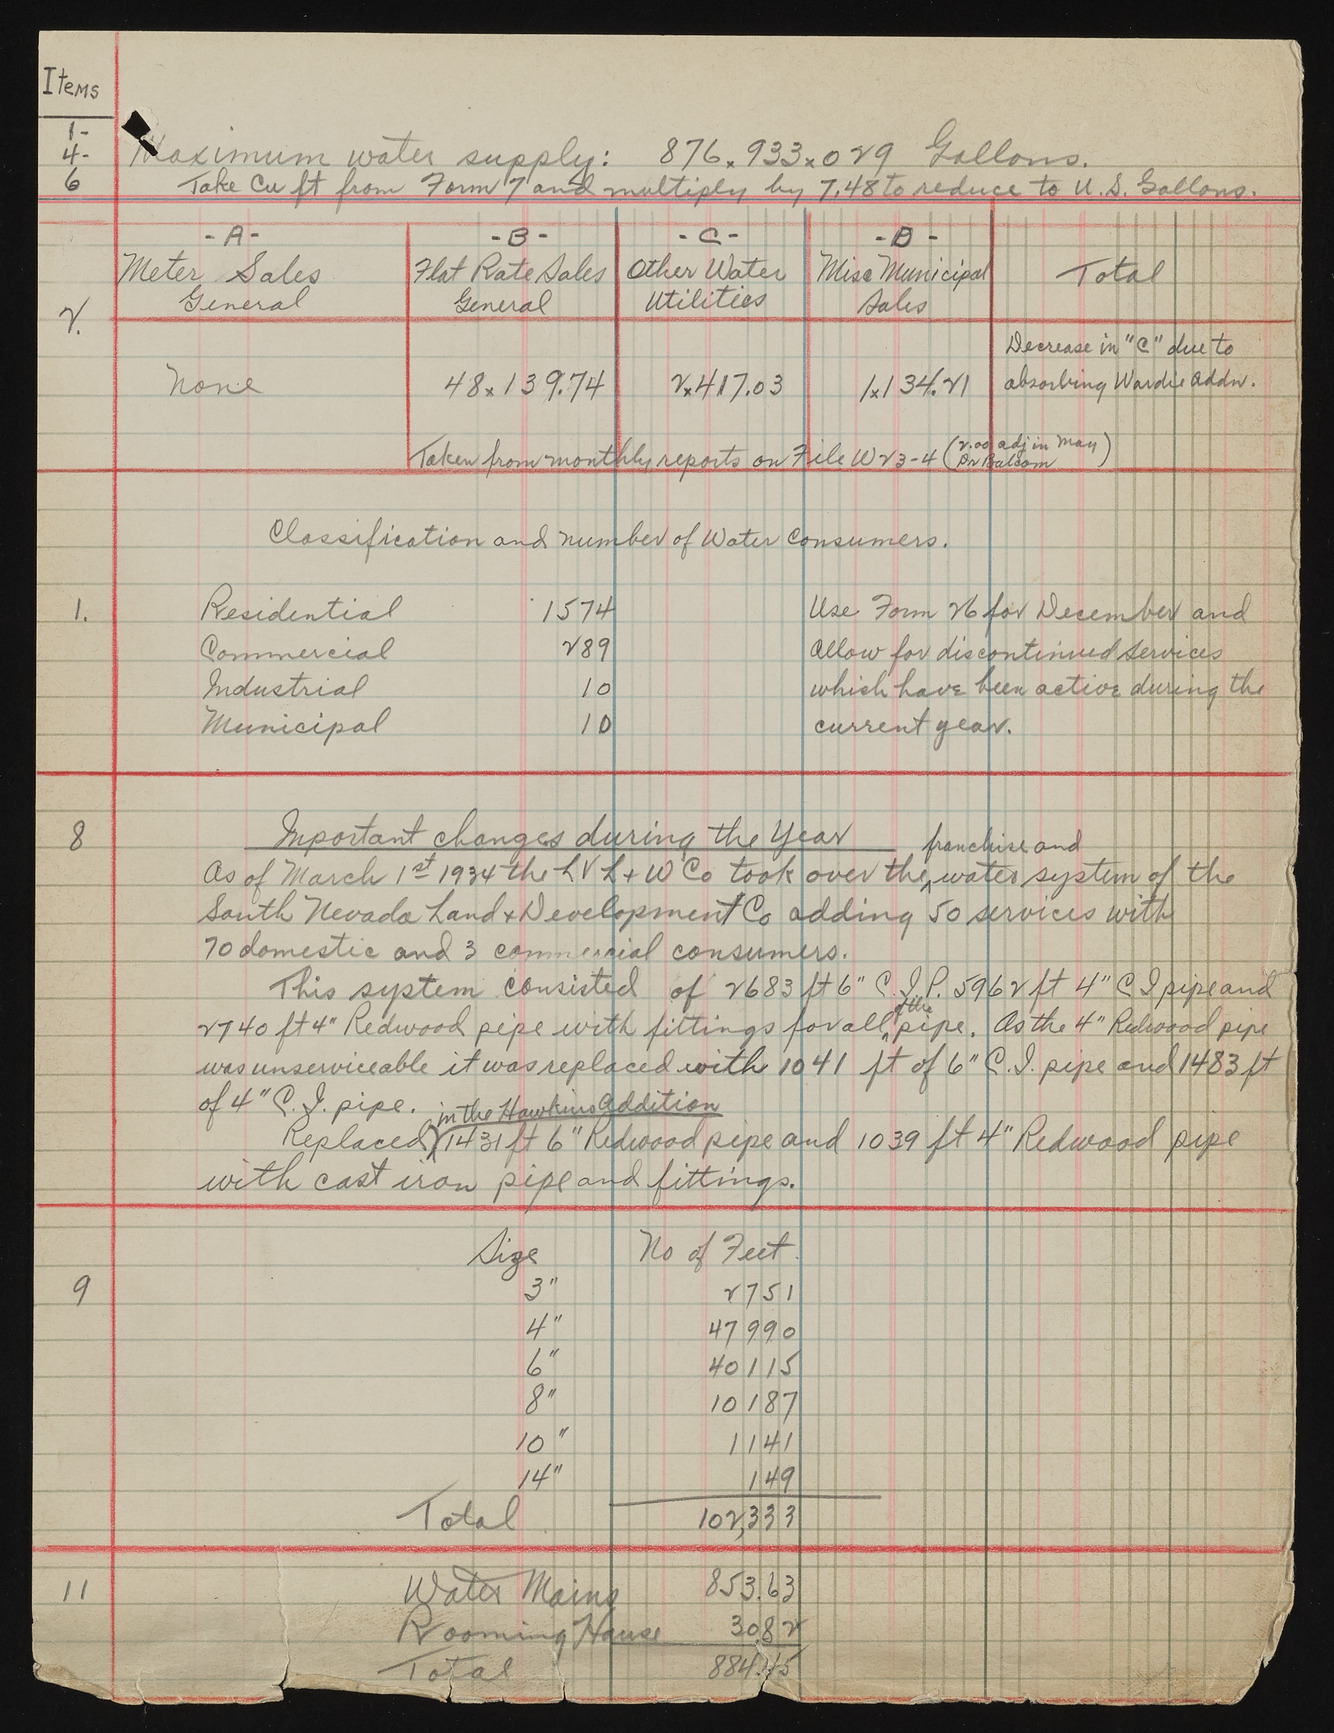 Items
1-
4- Maximum water supply: 876,933,029 Gallons.
6 Take Cu ft from Form 7 and multiply by 7.48 to reduce to U.S. Gallons.
-A- -B- -C- -D-
Meter Sales Flat Rate Sales Other Water Misc Municipal Total
General General Utilities Sales
2.
Decrease in "C" due to
None 48,139.74 2,417.03 1,134.21 absorbing Wardie Addn.
Taken from monthly reports on File W23-4 (2.00 adj in May
Pr Balcom)
Classification and number of Water Consumers.
1. Residential 1574 Use Form 26 for December and
Commercial 289 allow for discontinued services
Industrial 10 which have been active during the
Municipal 10 current year.
8 Important changes during the Year
franchise and
As of March 1st 1934 the L V L + W Co took over the water system of the
South Nevada Land & Development Co adding 50 services with
70 domestic and 3 commercial consumers.
This system consisted of 2683 ft 6" C.I.P. 5962 ft 4" C I pipe and
of the
2740 ft 4" Redwood pipe with fittings for all pipe. As the 4" Redwood pipe
was unserviceable it was replaced with 1041 ft of 6" C.I. pipe and 1483 ft
of 4" C.I. pipe.
in the Hawkins Addition
Replaced 1431 ft 6" Redwood pipe and 1039 ft 4" Redwood pipe
with cast iron pipe and fittings.
Size No of Feet
9 3" 2751
4" 47990
6" 40115
8" 10187
10" 1141
14" 149
Total 102,333
11 Water Mains 853.63
Rooming House 30.82
Total 884.45